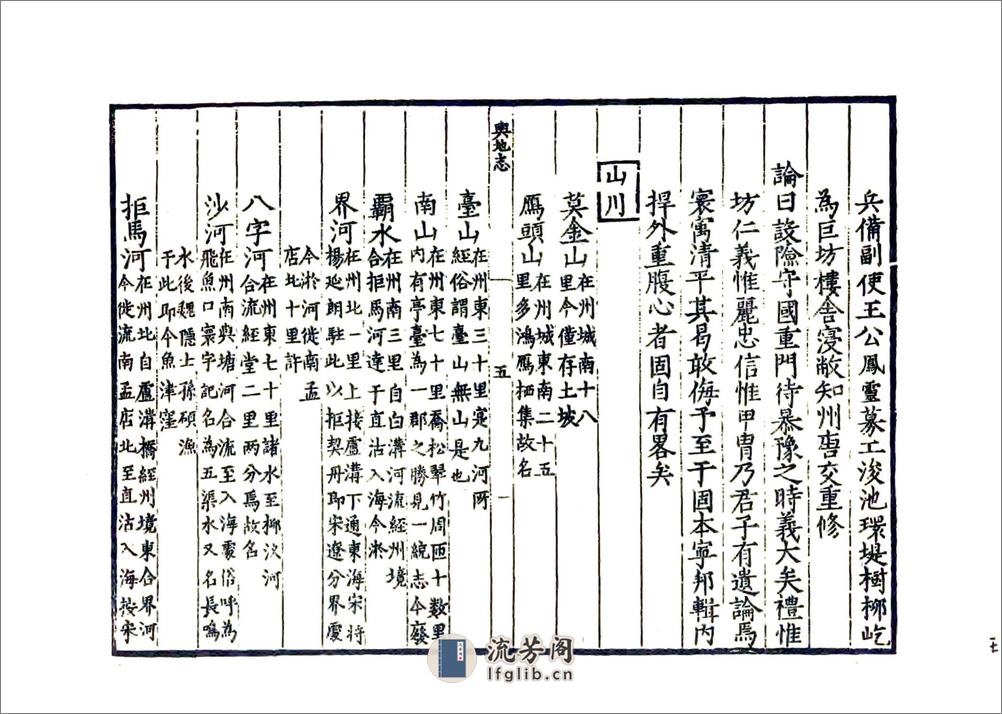 兵備副使王公鳳靈募工浚池環堤樹柳屹
為巨坊樓舍寖敝知州唐交重修
論曰設險守國重門待暴豫之時義大矣禮惟
坊仁義惟麗忠信惟甲冑乃君子有遺論焉
寰寓清平其曷敢侮予至于固本寧邦輯內
捍外重腹心者固自有畧矣
山川
莫金山在州城南十八
里今僅存土坡
鴈頭山在州城東南二十五
里多鴻鴈栖集故名
輿地志
五
臺山在州東三十里寔九河所
經俗謂臺山無山是也
南山在州東七十里喬松翠竹周匝十數里
內有亭臺為一郡之勝見一統志今廢
霸水在州南三里自白溝河流經州境
合拒馬河達于直沽入海今淤
界河在州北一里上接盧溝下通東海宋將
楊延朗駐此以拒契丹即宋遼分界處
今淤河徙南孟
店北十里許
八字河在州東七十里諸水至柳汊河
合流經堂二里兩分爲故名
沙河在州南與塘河合流至入海處俗呼為
飛魚口寰宇記名為五渠水又名長鳴
水後魏隱士孫碩漁
于此即今魚津窪
拒馬河在州北自盧溝橋經州境東合界河
今徙流南孟店北至直沽入海按宋
七
流芳阁
lfglib.cn